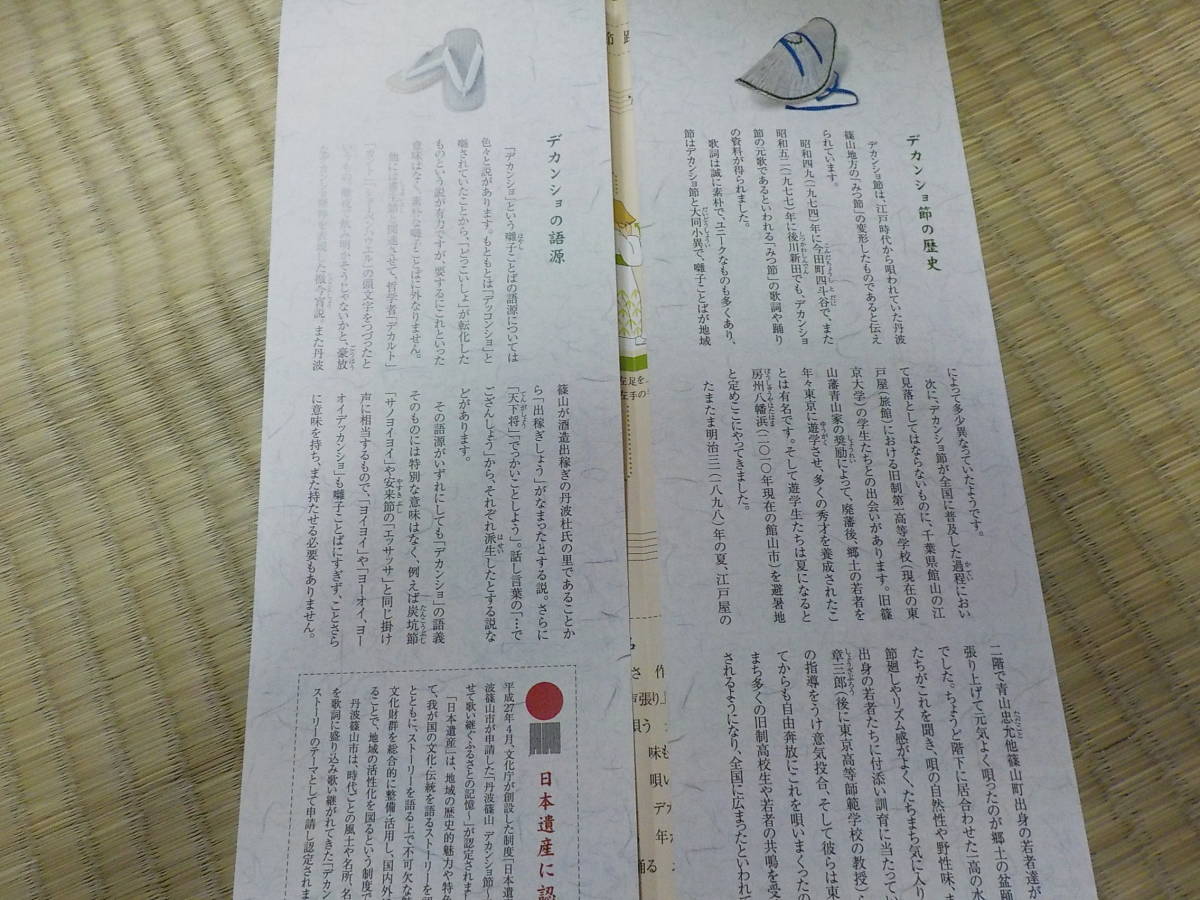 デカンショ節の歴史
デカンショ節は、江戸時代から唄われていた丹波
篠山地方の「みつ節」の変形したものであると伝え
られています。
昭和四九(一九七四)年に今田町四斗谷で、また
昭和五二(一九七七)年に後川新田でも、デカンショ
節の元歌であるといわれる「みつ節」の歌詞や踊り
の資料が得られました。
歌詞は誠に素朴で、ユニークなものも多くあり、
節はデカンショ節と大同小異で、囃子ことばが地域
によって多少異なっていたようです。
次に、デカンショ節が全国に普及した過程におい
て見落としてはならないものに、千葉県館山の江
戸屋(旅館)における旧制第一高等学校(現在の東
京大学)の学生たちとの出会いがあります。旧篠
山藩青山家の奨励によって、廃藩後、郷土の若者を
年々東京に遊学させ、多くの秀才を養成されたこ
とは有名です。そして遊学生たちは夏になると
房州八幡浜(二〇一〇年現在の館山市)を避暑地
と定めここにやってきました。
たまたま明治三一(一八九八)年の夏、江戸屋の
二階で青山忠允他篠山町出身の若者達が
張り上げて元気よく唄ったのが郷土の盆踊
でした。ちょうど階下に居合わせた一高の水
たちがこれを聞き、唄の自然性や野性味、ま
節廻しやリズム感がよく、たちまち気に入り
出身の若者たちに付添い訓育に当たってい
章三郎(後に東京高等師範学校の教授)
の指導をうけ意気投合、そして彼らは東
てからも自由奔放にこれを唄いまくったの
まち多くの旧制高校生や若者の共鳴を受
されるようになり、全国に広まったといわれて
デカンショの語源
「デカンショ」という囃子ことばの語源については
色々と説があります。もともとは「デッコンショ」と
囃されていたことから、「どっこいしょ」が転化した
ものという説が有力ですが、要するにこれといった
意味はなく、素朴な囃子ことばに外なりません。
他には書生節と関連させて、哲学者「デカルト」
「カント」「ショーペンハウエル」の頭文字をつづったと
じゃないかと、豪放
説。また丹波
篠山が酒造出稼ぎの丹波杜氏の里であることか
ら「出稼ぎしょう」がなまったとする説。さらに
「天下将」「でっかいことしよう」。話し言葉の「…で
ござんしょう」から、それぞれ派生したとする説な
どがあります。
その語源がいずれにしても「デカンショ」の語義
そのものには特別な意味はなく、例えば炭坑節
「サノヨイヨイ」や安来節の「エッサッサ」と同じ掛け
声に相当するもので、「ヨイヨイ」や「ヨーオイ、ヨー
オイデッカンショ」も囃子ことばにすぎず、ことさら
に意味を持ち、また持たせる必要もありません。
日本遺産に認
平成27年4月、文化庁が創設した制度「日本遺
波篠山市が申請した「丹波篠山 デカンショ節〜
せて歌い継ぐふるさとの記憶〜」が認定されまし
「日本遺産」は、地域の歴史的魅力や特色
て、我が国の文化・伝統を語るストーリーを認
とともに、ストーリーを語る上で不可欠な魅
文化財群を総合的に整備・活用し、国内外に
ることで、地域の活性化を図るという制度で
丹波篠山市は、時代ごとの風土や名所、名
を歌詞に盛り込み歌い継がれてきた「デカン
ストーリーのテーマとして申請し認定されま